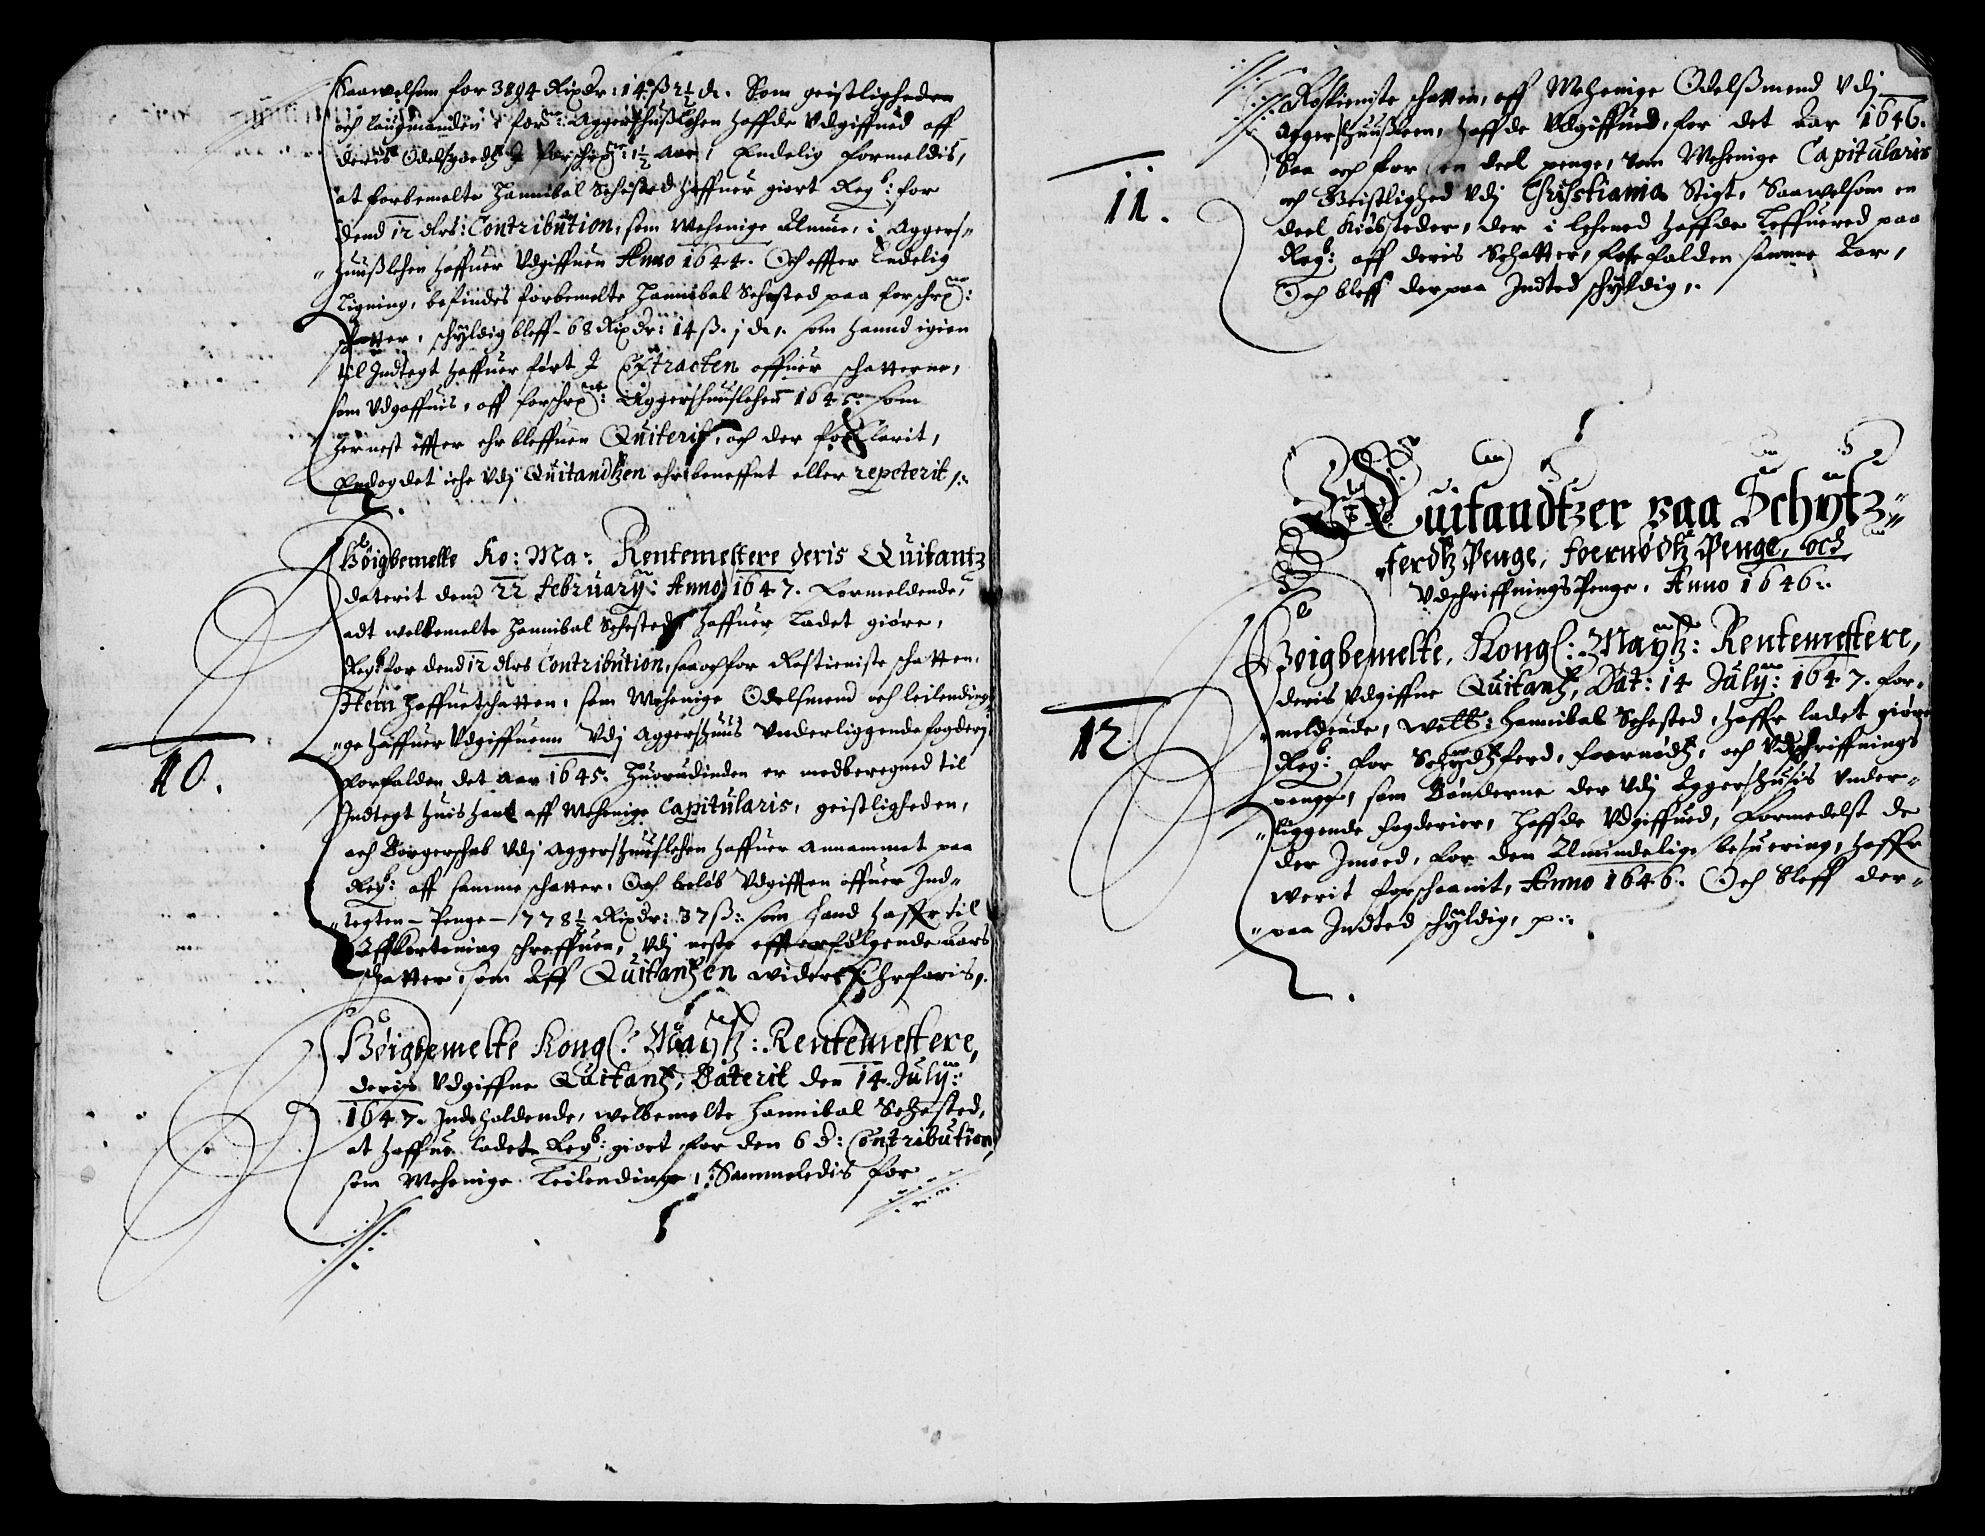 Saawelsom for 3894 Rixdr: 14 ß 2½ d. Som geistligheden
och laugmanden i forn: Aggershußlehen haffde Vdgiffued aff
deris Odelsgoedtz I forschr: 1½ Aar, Endelig formeldis,
at forbemelte Hannibal Sehested haffuer giort Regb: for
dend 12 dlrs: Contribution, som Mehenige Almue, i Aggers-
huußlehen haffuer Vdgiffuen Anno 1644. Och effter Endelig
Ligning, befindes forbemelte Hannibal Sehested paa forschr:
schatter, schyldig bleff - 68 Rixdr: 14 ß. j d, som hannd igien
til Indtegt haffuer ført I Extracten offuer schatterne,
som Vdgaffuis, aff forschr: Aggershuuslehen 1645 som
hernest effter ehr bleffuen Quiterit, och der forclarit,
Endog det iche Vdj Quitandtzen ehr beneffnt eller repeterit,
Høigbemelte Ko: Ma: Rentemestere deris Quitantz
daterit dend 22 February: Anno 1647. Formeldende,
adt welbemelte Hannibal Sehested, haffuer Ladet giøre,
Regb for dend 12 dlrs Contribution, saa och for Rostieniste schatten,
Item haffuetschatten, som Mehenige Odelsmend och leilending-
ge haffuer Vdgiffuenn Vdj Aggershuus Vnderliggende fogderj
forfalden det Aar 1645. Huorudinden er medberegned til
Indtegt huis hand aff Mehenige Capitularis, geistligheden,
och Borgerschab Vdj Aggershuuslehen haffuer annammet paa
Regb: aff samme schatter. Och beløb Vdgifften offuer Ind-
tegten - Penge - 778½ Rixdr: 37 ß: som hand haffr til
Affkortening schreffuen, Vdj neste effterfølgende Aars
schatter, som Aff Quitantzen widere Ehrfaris,
10.
Høigbemelte Kongl: Maytz: Rentemestere,
deris Vdgiffne Quitantz, Daterit den 14. July:
1647. Indeholdende, welbemelte Hannibal Sehested,
at haffue Ladet Regb: giort for den 6 d: Contribution,
som Mehenige Leilendinge, Sammeledis for
Rostieniste schatten, aff Mehenige Odelßmend Vdj
Aggershuusleen, haffde Vdgiffued, for det Aar 1646.
Saa och for en deel penge, som Mehenige Capitularis
och Geistlighed Vdj Christiania Stigt, Saawelsom en
deel Kiøbsteder, der i lehened haffde Leffuered paa
Regb: aff deris Schatter, forfalden samme Aar,
Och bleff derpaa Indted schyldig,
11.
Quitandtzer paa Schytz-
ferdtz Penge, foernødtz Penge, och
Vdschriffnings Penge, Anno 1646.
Høigbemelte, Kongl: Maytz: Rentemestere,
deris Vdgiffne Quitantz, Dat: 14 July: 1647. For-
meldende, Welb: Hannibal Sehested, haffr ladet giøre
Regb: for Schydtzferd, foernødtz, och Vdschriffnings
penge, som Bønderne der Vdj Aggershuus Vnder-
liggende fogderier, haffde Vdgiffued, formedelst de
der Imoed, for den Almindelige besuering, haffr
werit forschaanit, Anno 1646. Och Bleff der-
paa Indted schyldig, p:
12.